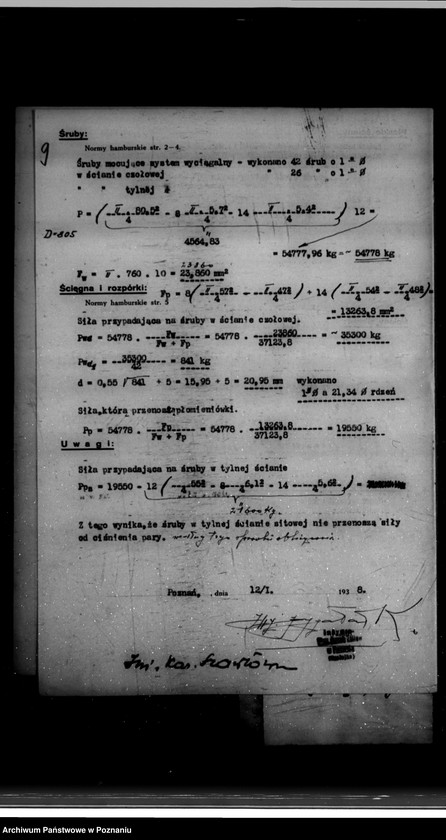 Śruby:
Normy hamburskie str. 2-4.
9
Śruby mocujące system wyciągalny - wykonano 42 śrub o 1 " Ø
w ścianie czołowej " 26 " o 1 " Ø
" " tylnej
P = ( π . 80.5² / 4 - 8 π . 5.7² / 4 - 14 π . 5.4² / 4 ) 12 =
D-805
4564,83
= 54777,96 kg = ~ 54778 kg
23860
Fw = π . 760 . 10 = 23,860 mm²
Ścięgna i rozpórki: Fp = 8 ( π 57² / 4 - π 47² / 4 ) + 14 ( π 54² / 4 - π 48² / 4 ) =
Normy hamburskie str. 5
= 13263,8 mm²
Siła przypadająca na śruby w ścianie czołowej.
Pwd = 54778 . Fw / Fw + Fp = 54778 . 23860 / 37123,8 = ~ 35300 kg
Pwd₁ = 35300 / 42 = 841 kg
d = 0,55 √841 + 5 = 15,95 + 5 = 20,95 mm wykonano
1" Ø a 21,34 Ø rdzeń
Siła, którą przenoszą płomieniówki.
Pp = 54778 . Fp / Fw + Fp = 54778 . 13263,8 / 37123,8 = 19550 kg
Uwagi:
Siła przypadająca na śruby w tylnej ścianie
= 19550 - 12
Z tego wynika, że śruby w tylnej ścianie sitowej nie przenoszą siły
od ciśnienia pary. według tego
Poznań, , dnia 12/I. 193 8.
Inż. Kas.
Archiwum Państwowe w Poznaniu